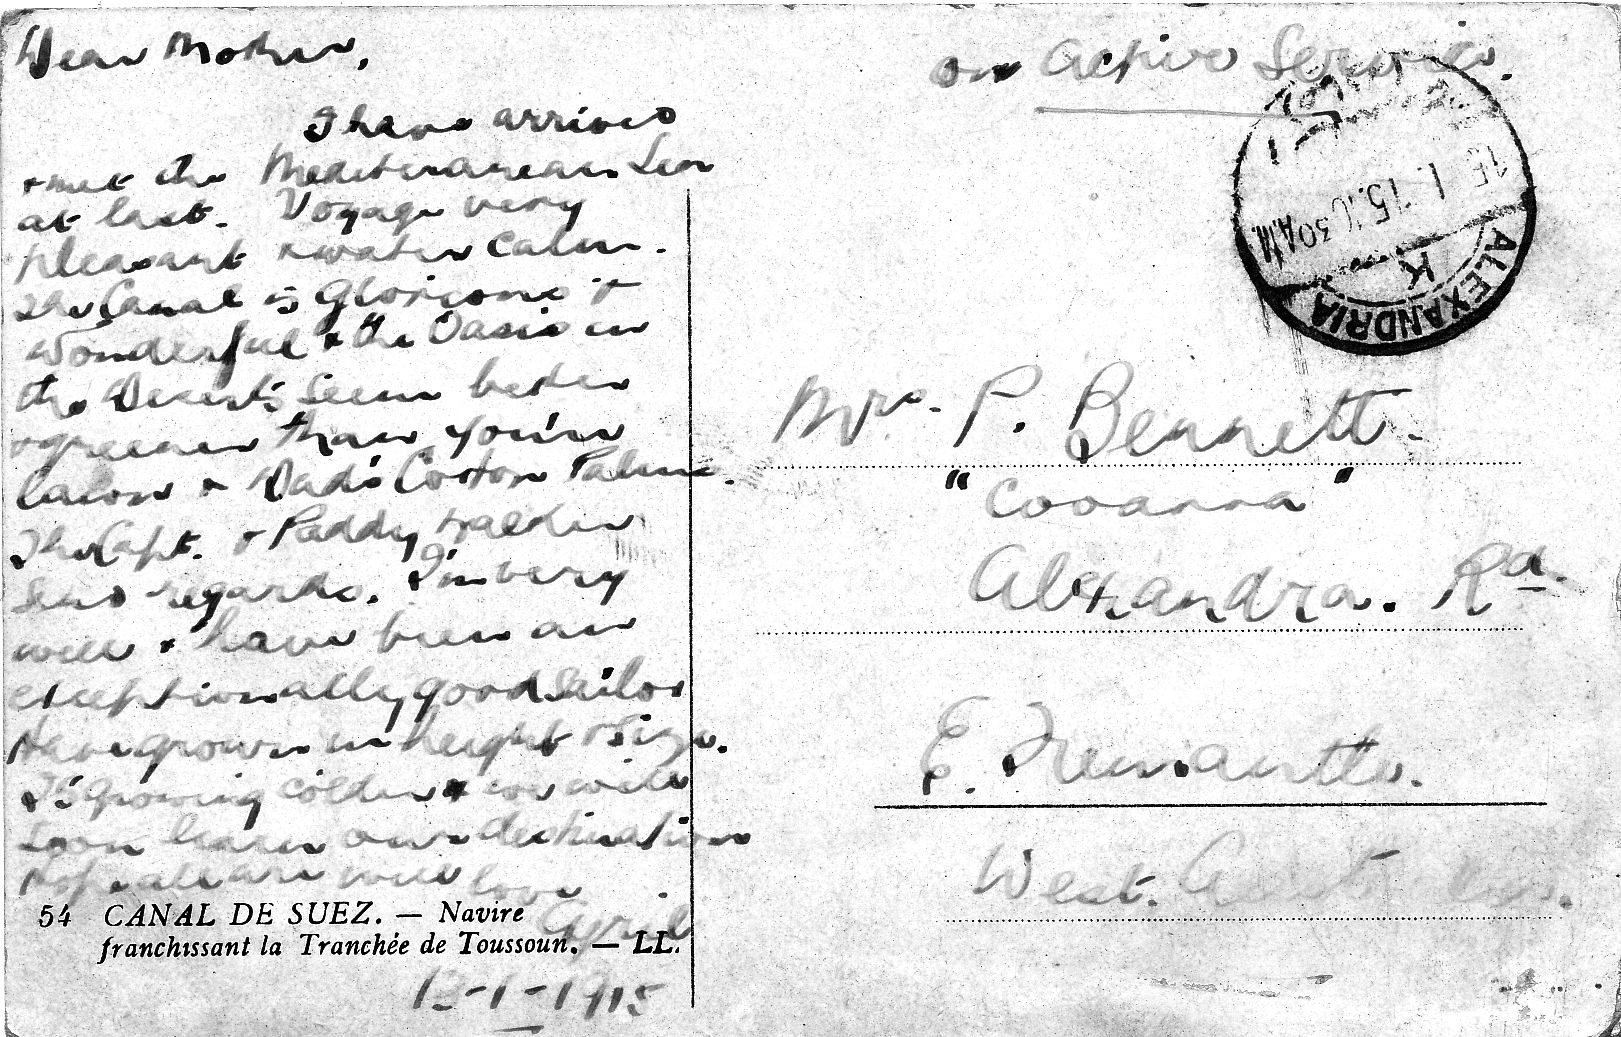 Dear Mother,
I have arrived
& met the Mediterranean Sea
at last. Voyage very
pleasant & water calm.
The Canal is glorious &
wonderful & the Oasis in
the Desert's seem better
& greener than you'in
lawn & Dad's Cotton Palms.
The Capt. & Paddy
send regards. I'm very
well & have been an
exceptionally good sailor
Have grown in height & size.
It's growing colder & we will
soon learn our destination
Hope all are well love
Cyril
54 CANAL DE SUEZ. — Navire
franchissant la Tranchée de Toussoun. — LL.
13-1-1915
on Active Service.
ALEXANDRIA
K
15. I. 15. 10 30 AM
Mrs. P. Bennett.
"Cooanna"
Alexandra. Rd.
E. Fremantle.
West. Australia.